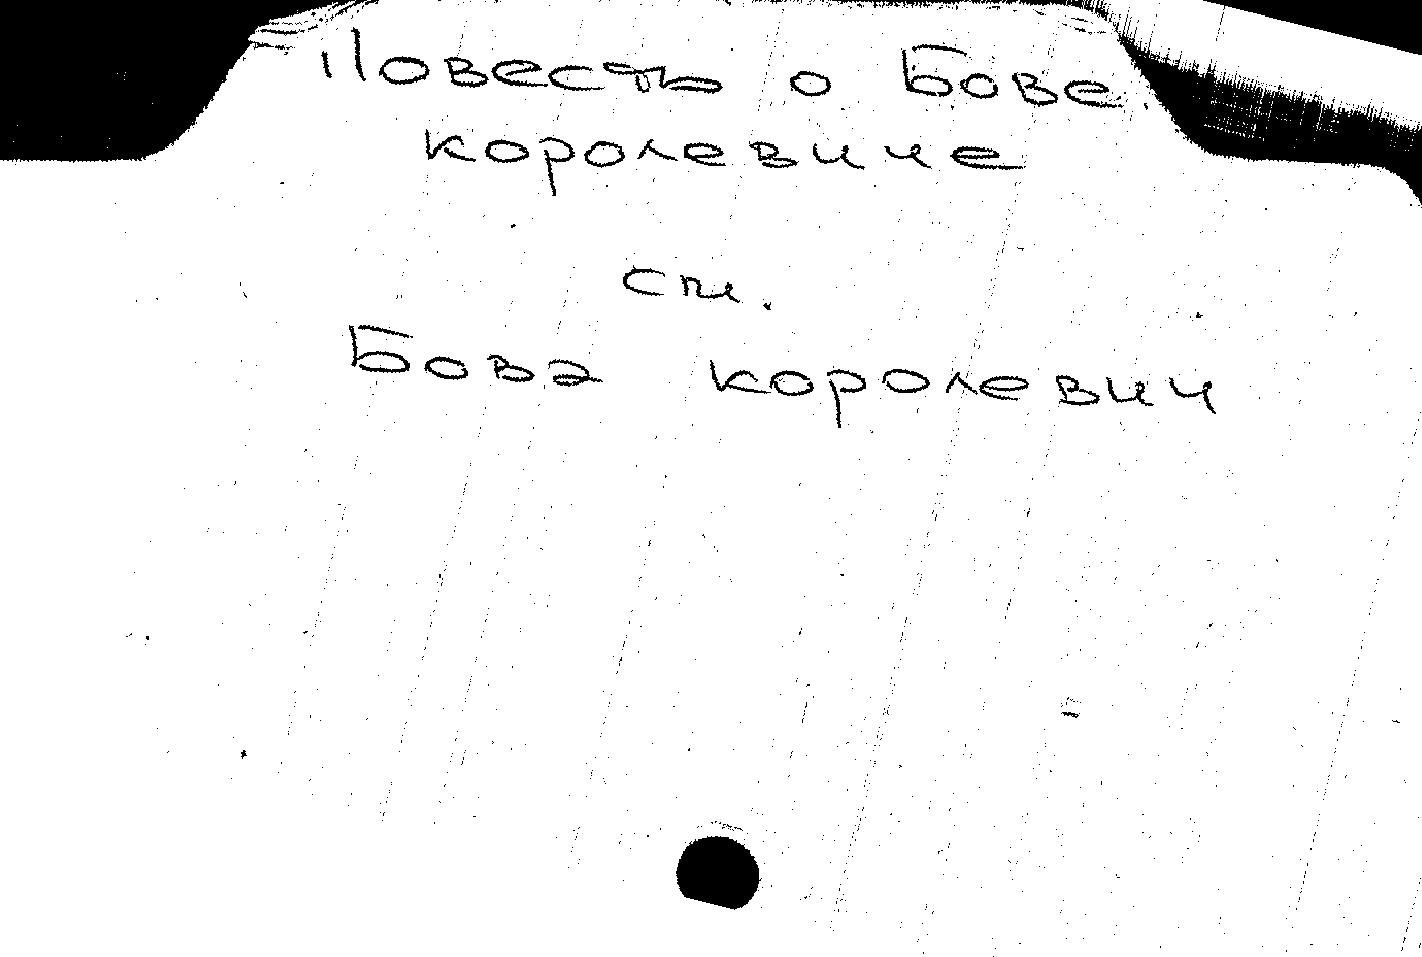 Повесть о Бове
королевиче
см.
Бова королевич